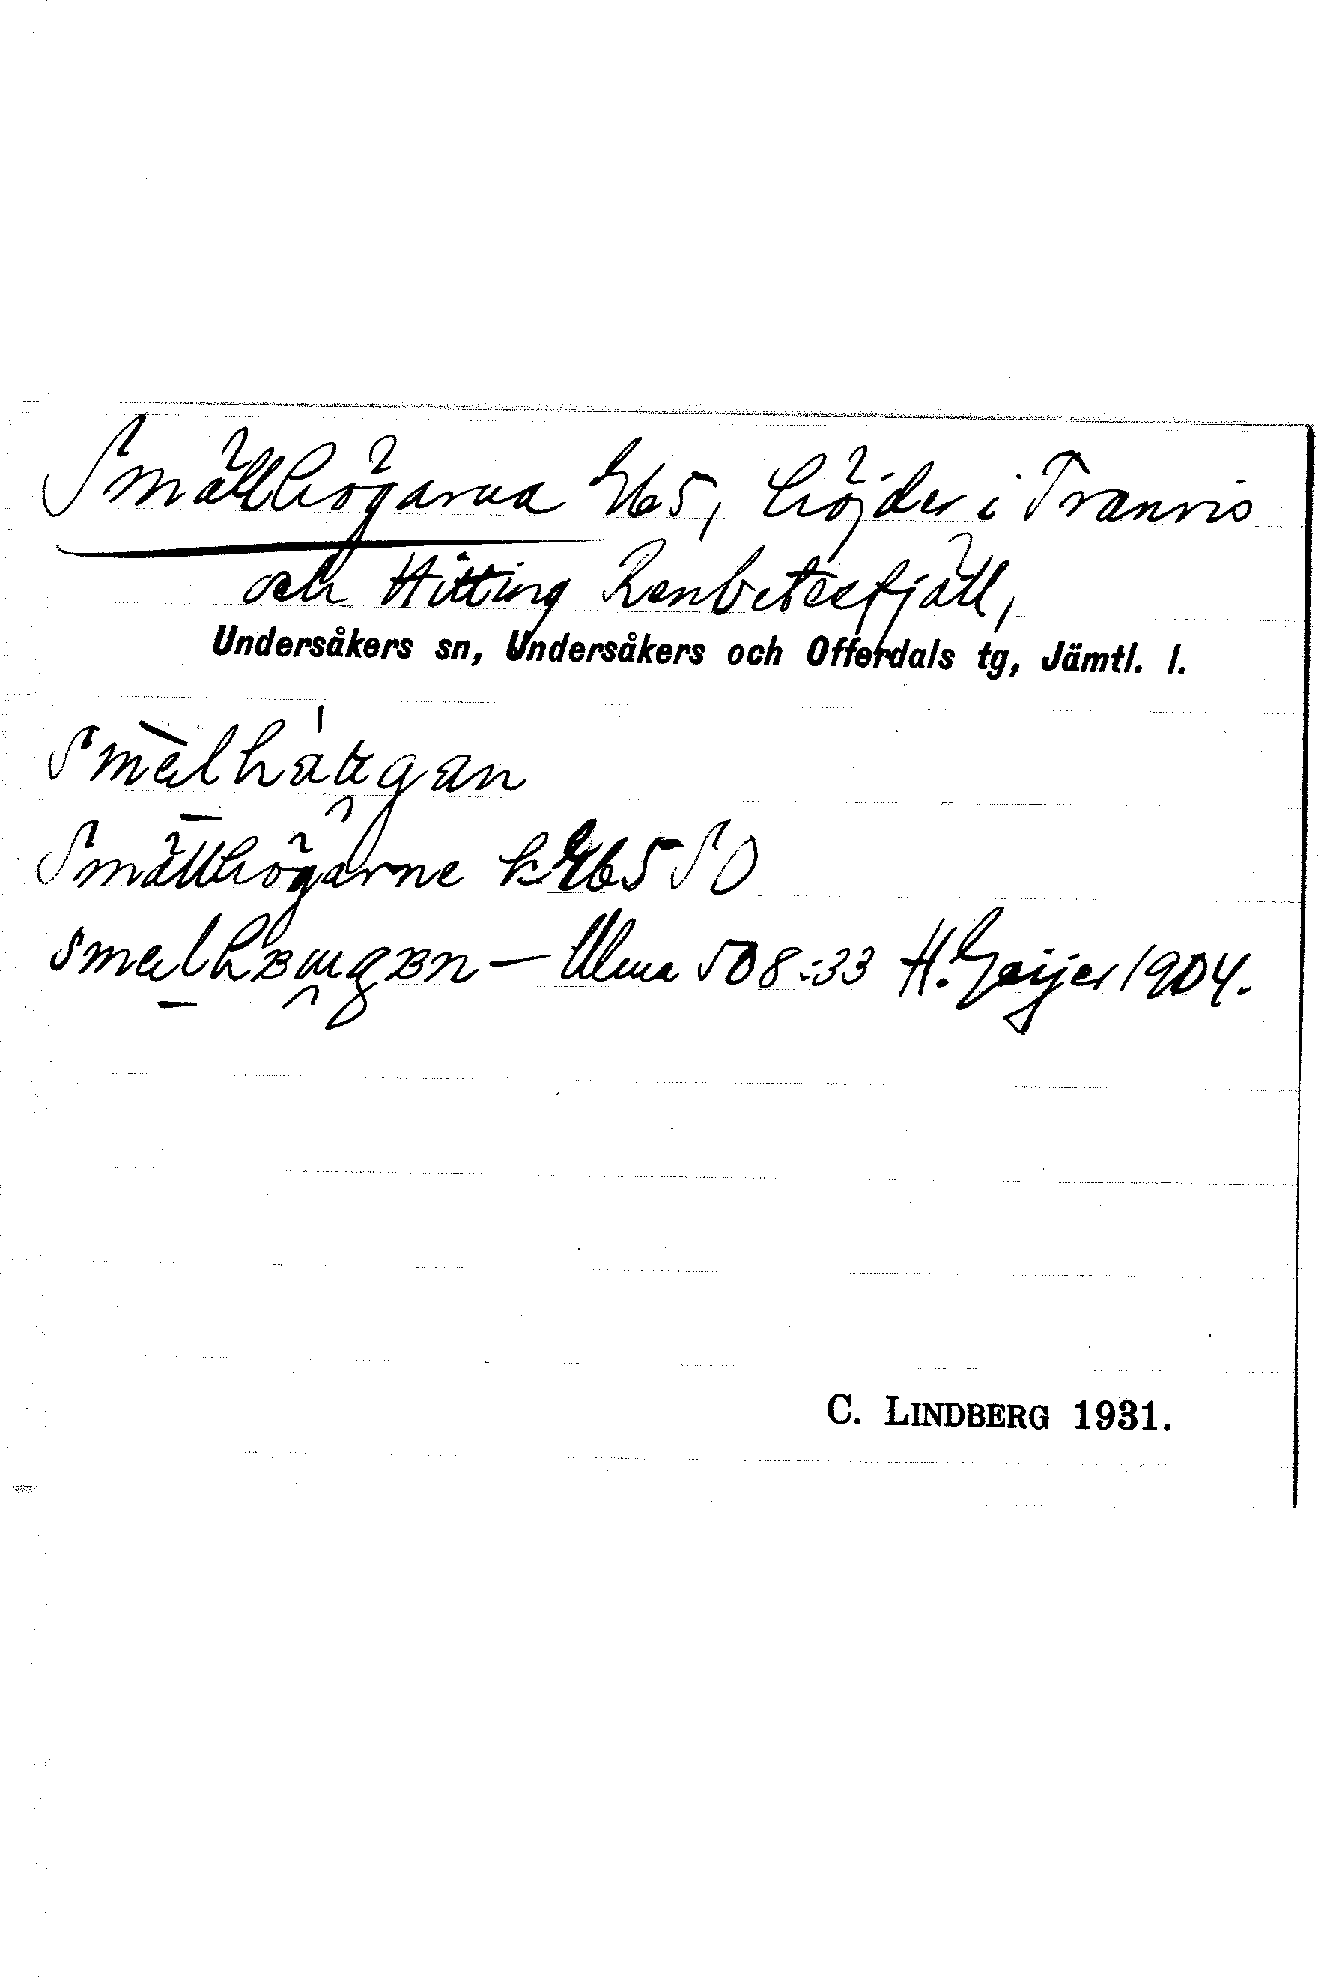 Smällhögarna 465, höjder i Tranris
och Hitting Renbetesfjäll,
Undersåkers sn, Undersåkers och Offerdals tg, Jämtl. l.
Smällhögarne k 465 SO
— Ulma 508:33 H. Geijer 1904.
C. LINDBERG 1931.